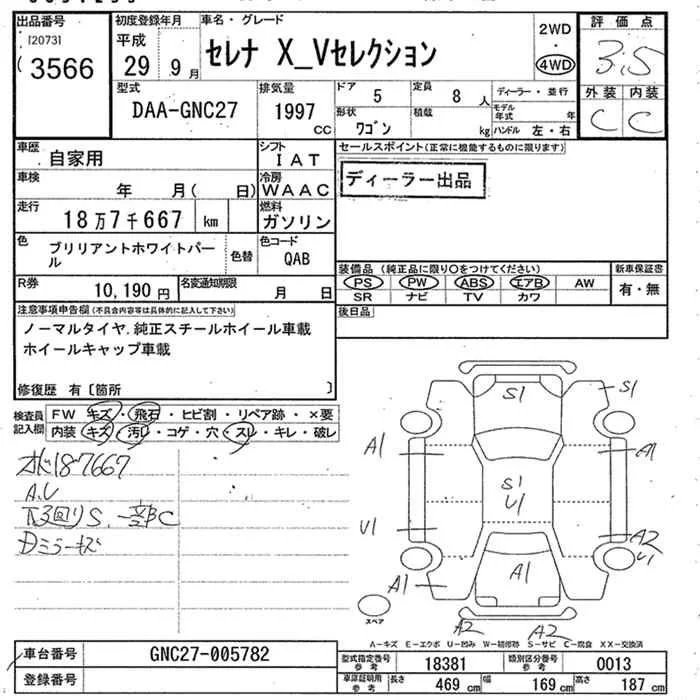 出品番号
[2073]
3566
初度登録年月
平成
29 9月
車名・グレード
セレナ X_Vセレクション
2WD
・
4WD
評価点
3.5
外装 内装
C C
型式
DAA-GNC27
排気量
1997
CC
ドア
5
定員
8 人
形状
ワゴン
積載
kg
ディーラー・並行
モデル年式 年
ハンドル 左・右
車歴
自家用
シフト
IAT
車検
年 月( 日)
冷房
WAAC
走行
18万7千667 km
燃料
ガソリン
色
ブリリアントホワイトパール
色替
色コード
QAB
R券
10,190円
名変通知期限
月 日
セールスポイント(正常に機能するものに限ります)
ディーラー出品
装備品(純正品に限り○をつけてください)
PS PW ABS エアB AW
SR ナビ TV カワ
新車保証書
有・無
後日品
注意事項申告欄(不具合内容等は具体的に記入して下さい)
ノーマルタイヤ.純正スチールホイール車載
ホイールキャップ車載
修復歴 有〔箇所 〕
検査員記入欄
FW キズ・飛石・ヒビ割・リペア跡・×要
内装 キズ・汚レ・コゲ・穴・スレ・キレ・破レ
187667
A.U
下廻りS.一部C
Dミラーキズ
S1
S1
A1
A1
S1
U1
U1
A2
U1
A1
A1
A2
A2
スペア
A-キズ E-エクボ U-凹み W-補修跡 S-サビ C-腐食 XX-交換済
車台番号
GNC27-005782
登録番号
型式指定番号 参考
18381
類別区分番号 参考
0013
車庫証明用 参考
長さ 469 cm
幅 169 cm
高さ 187 cm